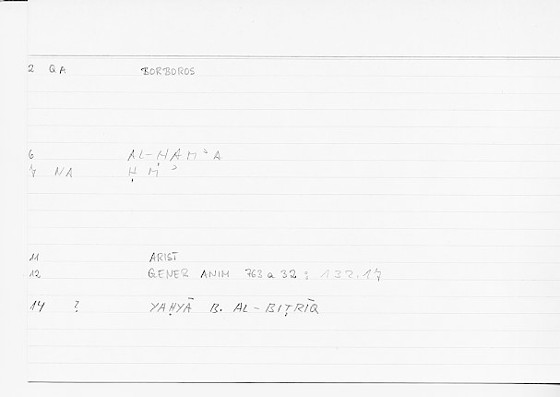 2 QA BORBOROS
6 AL-ḤAMʾA
7 NA Ḥ M ʾ
11 ARIST
12 GENER ANIM 763 a 32 ; 132.17
14 ? YAḤYĀ B. AL-BIṬRĪQ